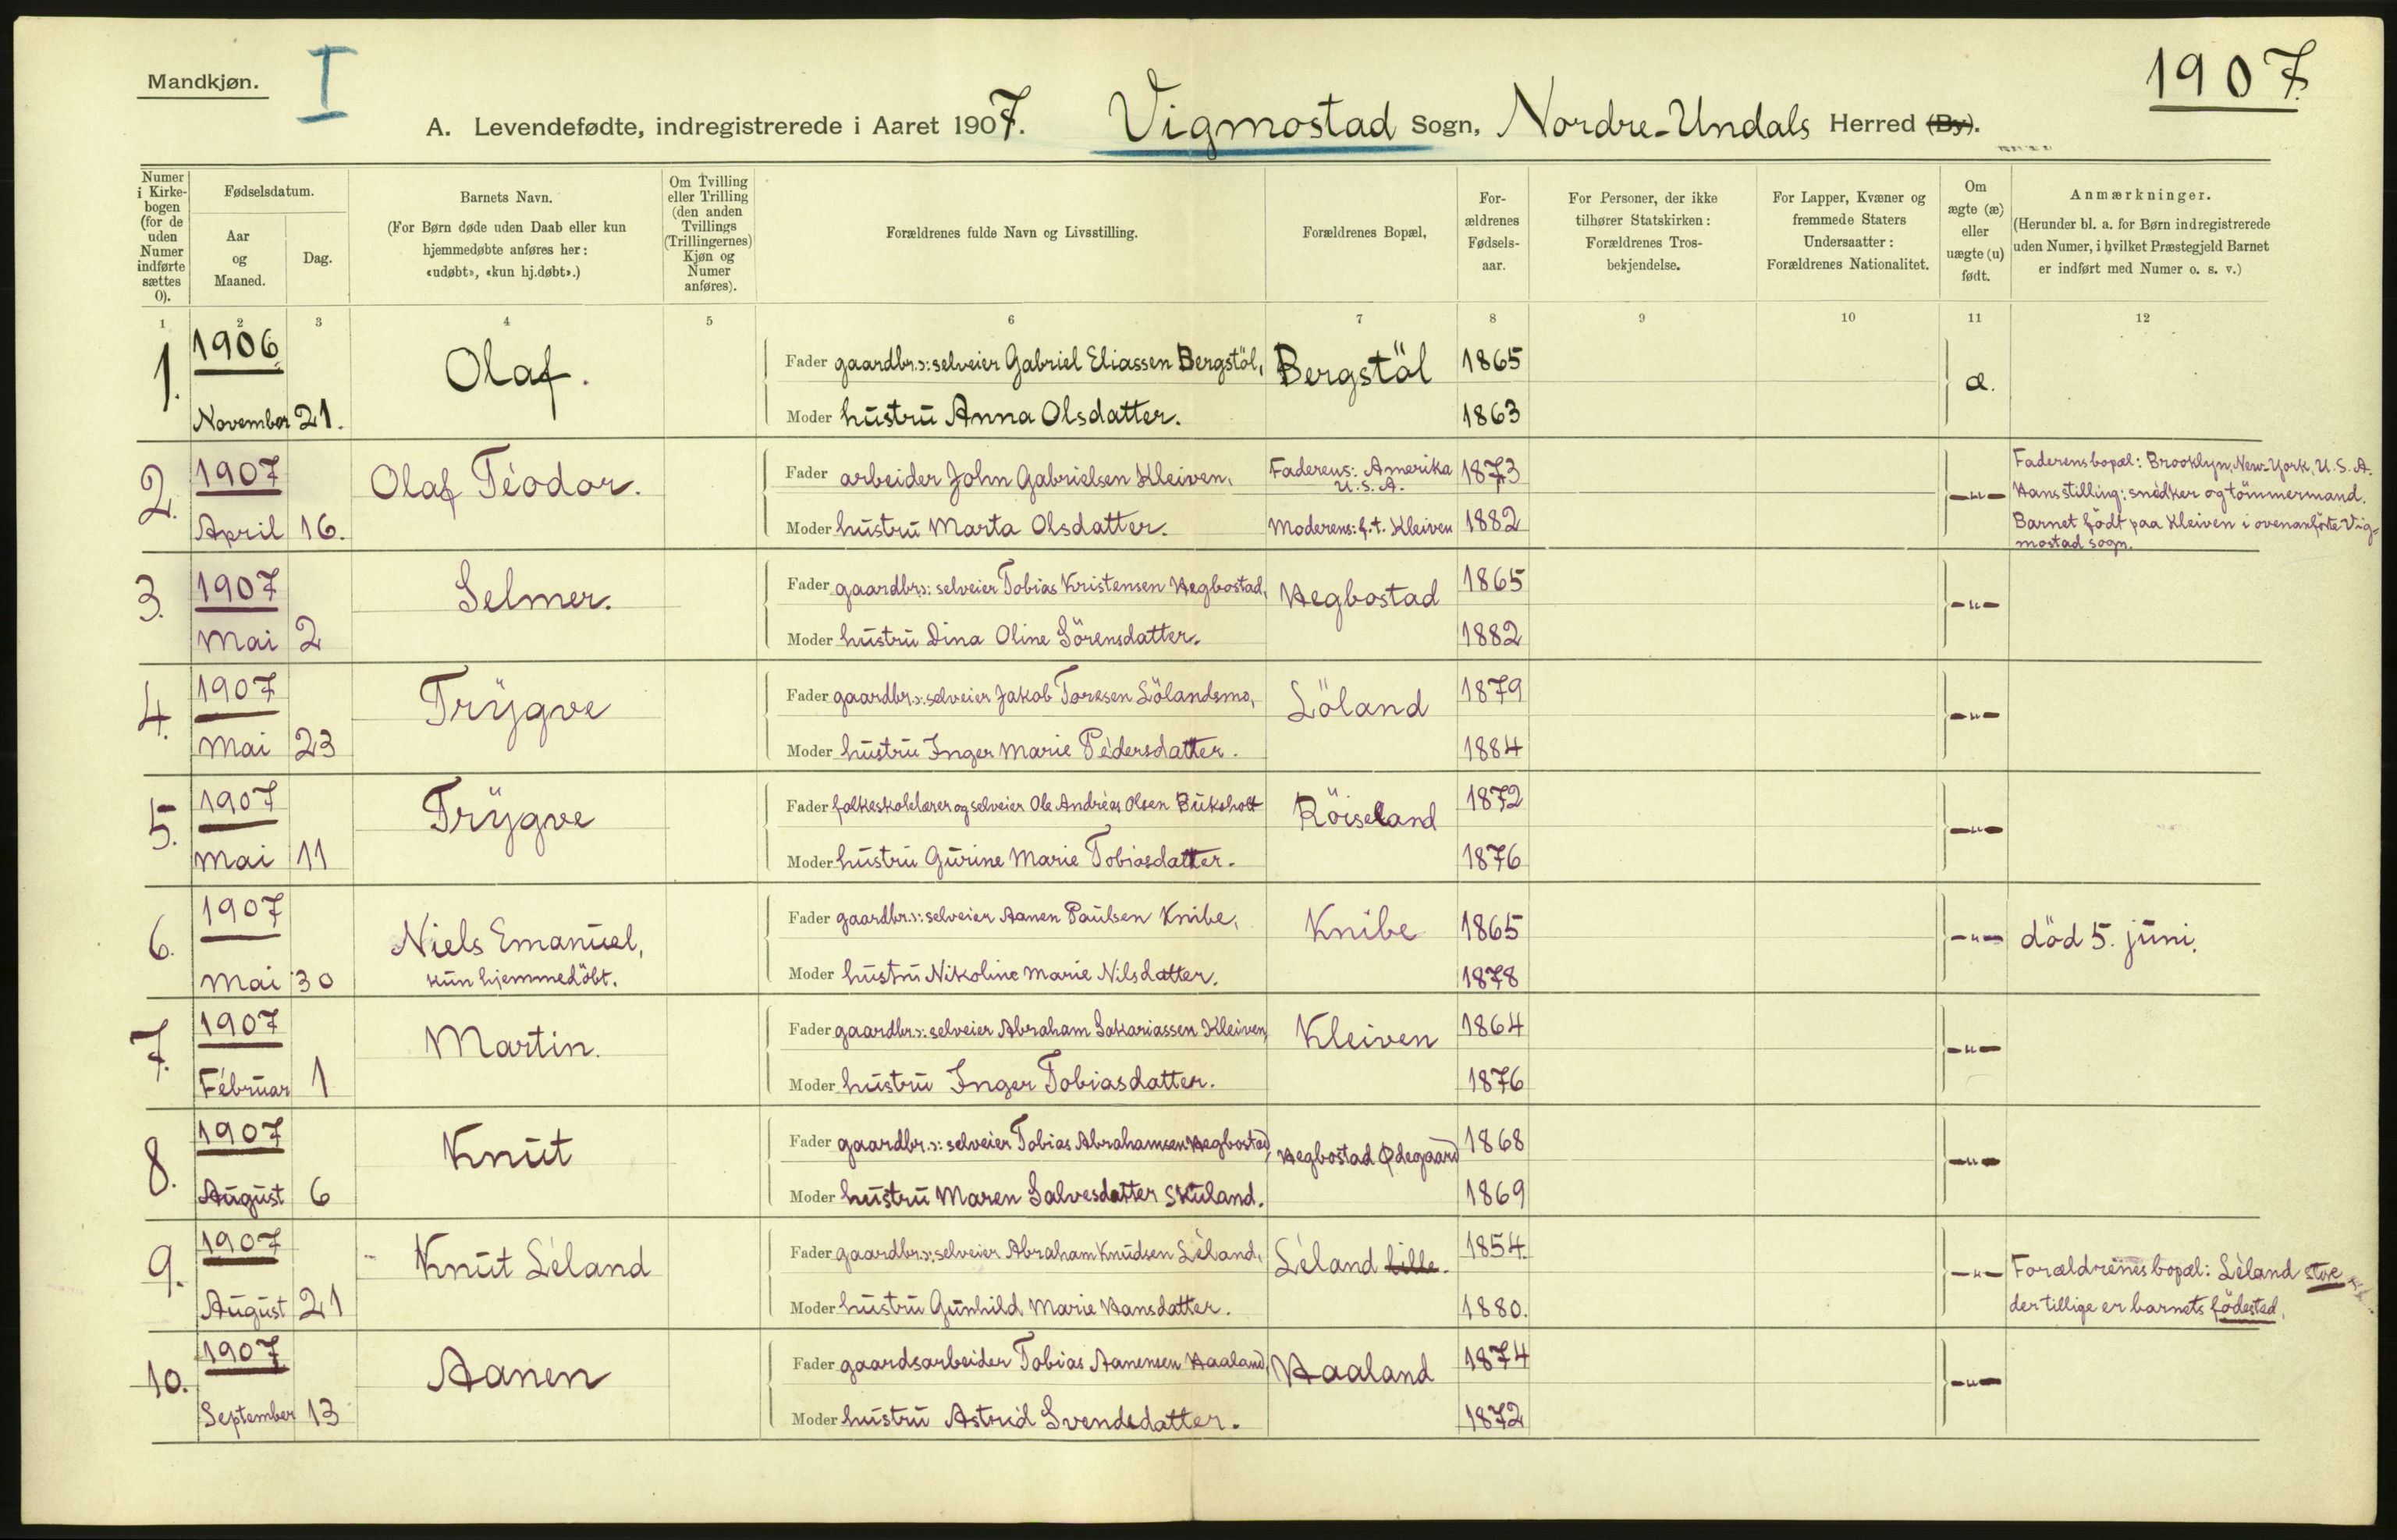 Mandkjøn.
I
1907.
A. Levendefødte, indregistrerede i Aaret 1907. Vigmostad Sogn, Nordre-Undals Herred (By).
Numer i Kirkebogen (for de uden Numer indførte sættes 0).
Fødselsdatum.
Aar og Maaned.
Dag.
Barnets Navn.
(For Børn døde uden Daab eller kun
hjemmedøbte anføres her:
«udøbt», «kun hj.døbt».)
Om Tvilling
eller Trilling
(den anden
Tvillings
(Trillingernes)
Kjøn og
Numer
anføres).
Forældrenes fulde Navn og Livsstilling.
Forældrenes Bopæl,
For-
ældrenes
Fødsels-
aar.
For Personer, der ikke
tilhører Statskirken:
Forældrenes Tros-
bekjendelse.
For Lapper, Kvæner og
fremmede Staters
Undersaatter:
Forældrenes Nationalitet.
Om
ægte (æ)
eller
uægte (u)
født.
Anmærkninger.
(Herunder bl. a. for Børn indregistrerede
uden Numer, i hvilket Præstegjeld Barnet
er indført med Numer o. s. v.)
1 2 3 4 5 6 7 8 9 10 11 12
1. 1906 Olaf. Fader gaardbr.ɔ: selveier Gabriel Eliassen Bergstöl, Bergstöl 1865 æ.
November 21. Moder hustru Anna Olsdatter. 1863
2. 1907 Olaf Téodor. Fader arbeider John Gabrielsen Kleiven, Faderens: Amerika U.S.A. 1873 -"-
April 16. Moder hustru Marta Olsdatter. Moderens: f.t. Kleiven 1882
Faderens bopæl: Brooklyn, New-York, U.S.A.
Hans stilling: snedker og tömmermand.
Barnet födt paa Kleiven i ovenanförte Vig-
mostad sogn.
3. 1907 Selmer. Fader gaardbr.ɔ: selveier Tobias Kristensen Hegbostad, Hegbostad 1865 -"-
Mai 2 Moder hustru Dina Oline Sörensdatter. 1882
4. 1907 Trygve Fader gaardbr.ɔ: selveier Jakob Toresen Lölandsmo, Löland 1879 -"-
Mai 23 Moder hustru Inger Marie Pédersdatter. 1884
5. 1907 Trygve Fader folkeskolelærer og selveier Ole Andréas Olsen Buksholt Röiseland 1872 -"-
Mai 11 Moder hustru Gurine Marie Tobiasdatter. 1876
6. 1907 Niels Emanuel, Fader gaardbr.ɔ: selveier Aanen Paulsen Knibe, Knibe 1865 -"- död 5. juni.
Mai 30 kun hjemmedöbt. Moder hustru Nikoline Marie Nilsdatter. 1878
7. 1907 Martin. Fader gaardbr.ɔ: selveier Abraham Sakariassen Kleiven, Kleiven 1864 -"-
Fébruar 1 Moder hustru Inger Tobiasdatter. 1876
8. 1907 Knut Fader gaardbr.ɔ: selveier Tobias Abrahamsen Hegbostad, Hegbostad Ødegaard 1868 -"-
August 6 Moder hustru Maren Salvesdatter Skuland. 1869
9. 1907 Knut Léland Fader gaardbr.ɔ: selveier Abraham Knudsen Léland, Léland lille. 1854. -"- Forældrenes bopæl: Léland store
August 21 Moder hustru Gunhild Marie Hansdatter. 1880. der tillige er barnets födested.
10. 1907 Aanen Fader gaardsarbeider Tobias Aanensen Haaland, Haaland 1874 -"-
September 13 Moder hustru Astrid Svendsdatter. 1872